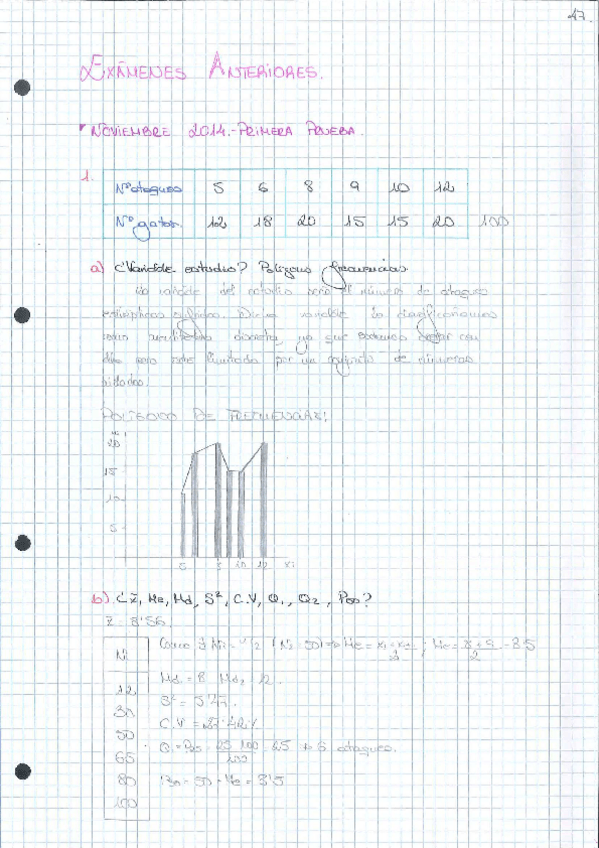 47.
EXÁMENES ANTERIORES.
NOVIEMBRE 2014.- PRIMERA PRUEBA.
1.
Nº ataques 5 6 8 9 10 12
Nº gatos 12 18 20 15 15 20 100
a) ¿Variable estudio? Polígono frecuencias
La variable del estudio será el número de ataques
sufridos. Dicha variable la clasificamos
como discreta, ya que podemos contar con
limitada por un conjunto de números
POLÍGONO DE FRECUENCIAS:
20
15
10
5
8 10 12 xi
b) ¿x̄, Me, Md, S², C.V, Q1, Q2, P50?
x̄ = 8'56.
Ni
12
30
50
65
80
100
Como (Ni = 50) => Me = ; Me = 8+9/2 = 8.5
Md1 = 8 Md2 = 12.
S² =
C.V =
Q1 = P25 = 25·100/100 = 25 → 6 ataques.
= 50 = Me = 8'5